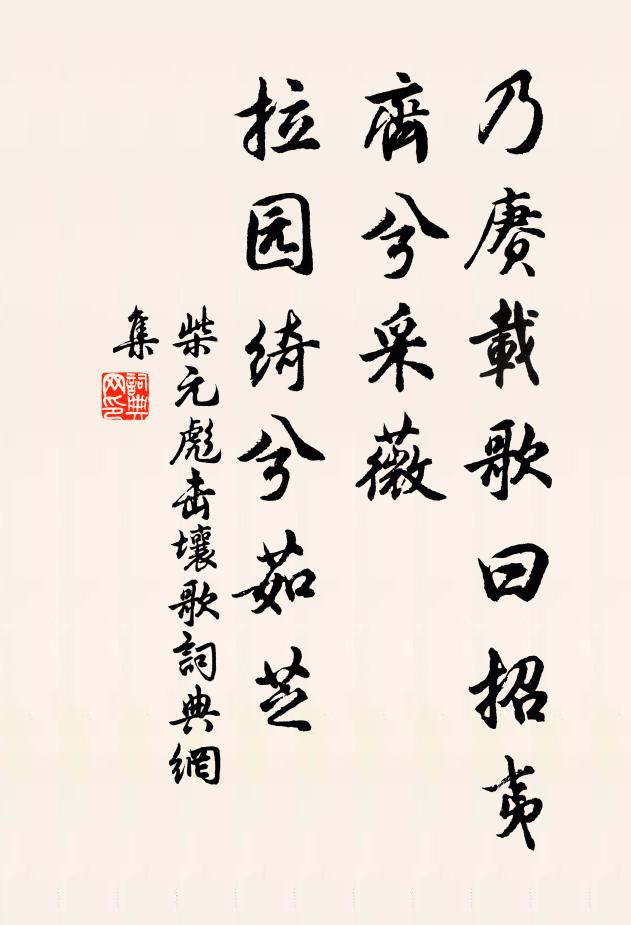 乃赓載歌曰招夷
齊兮采薇
拉园绮兮茹芝
柴元彪击壤歌詞典網
集
詞典网印